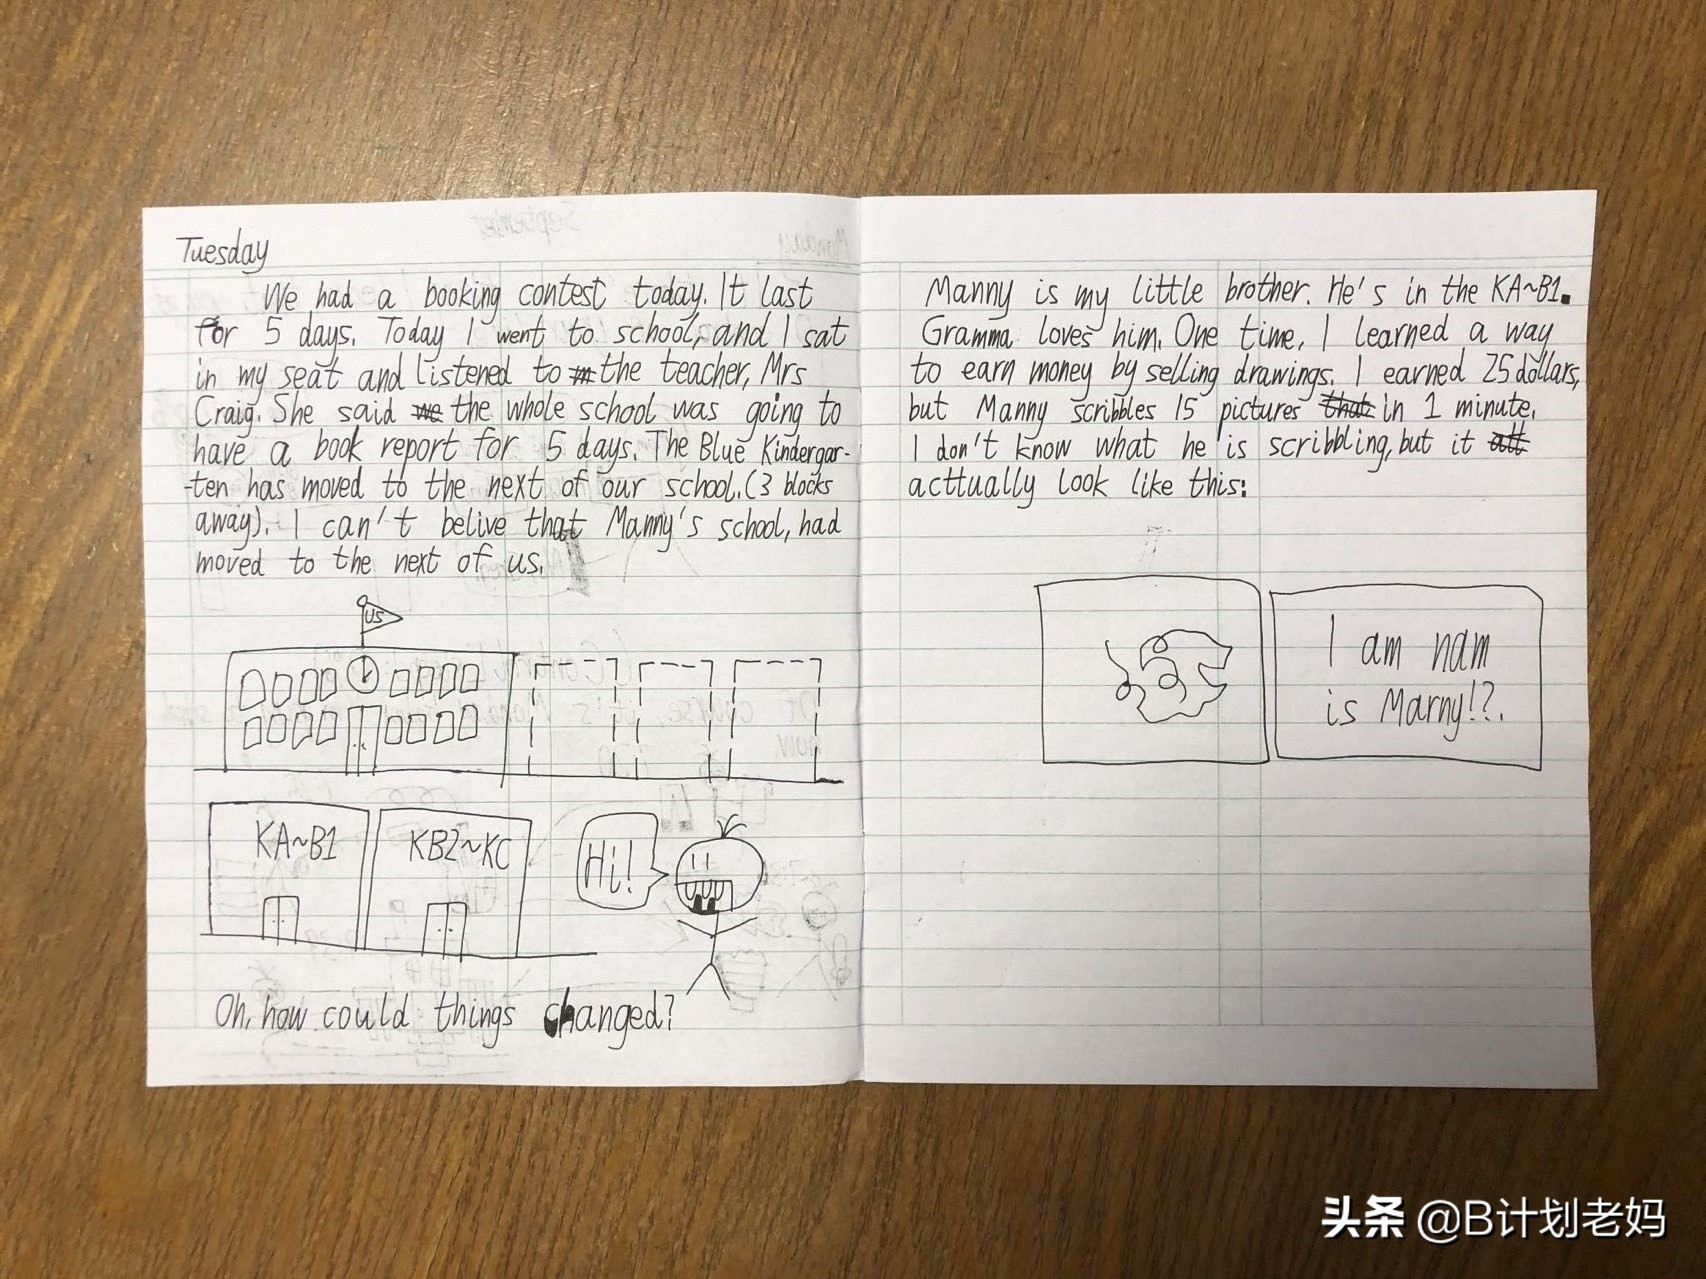 Tuesday
We had a booking contest today. It last
for 5 days. Today I went to school, and I sat
in my seat and listened to the teacher, Mrs
Craig. She said the whole school was going to
have a book report for 5 days. The Blue Kindergar-
-ten has moved to the next of our school. (3 blocks
away). I can't belive that Manny's school, had
moved to the next of us.
US
KA~B1
KB2~KC
Hi!
Oh, how could things changed?
Manny is my little brother. He's in the KA~B1.
Gramma loves him. One time, I learned a way
to earn money by selling drawings. I earned 25 dollars,
but Manny scribbles 15 pictures that in 1 minute.
I don't know what he is scribbling, but it
acttually look like this:
I am nam
is Marny!?.
头条 @B计划老妈